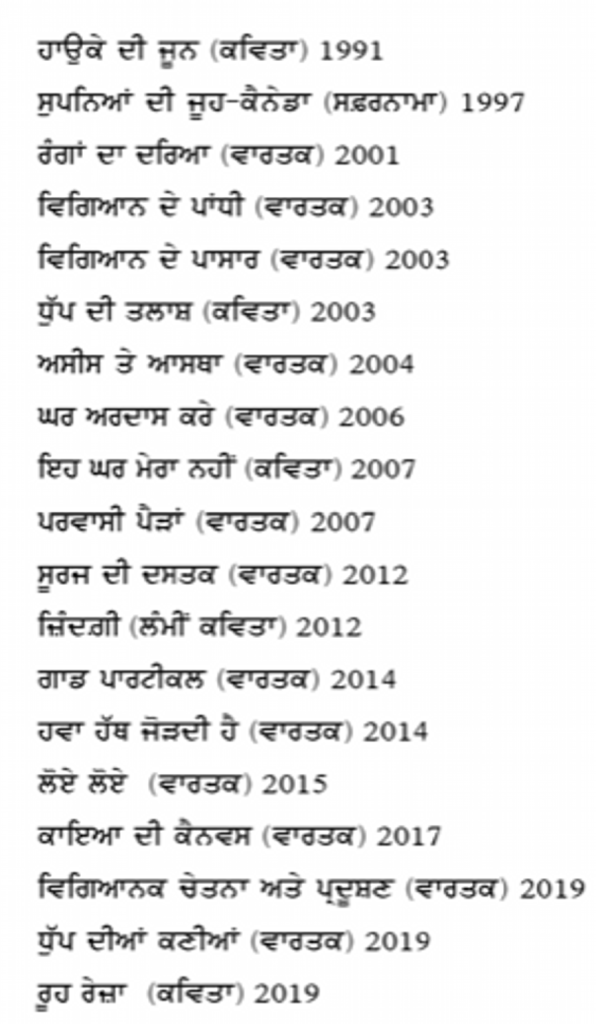 ਹਾਉਕੇ ਦੀ ਜੂਨ (ਕਵਿਤਾ) 1991
ਸੁਪਨਿਆਂ ਦੀ ਜੂਹ-ਕੈਨੇਡਾ (ਸਫ਼ਰਨਾਮਾ) 1997
ਰੰਗਾਂ ਦਾ ਦਰਿਆ (ਵਾਰਤਕ) 2001
ਵਿਗਿਆਨ ਦੇ ਪਾਂਧੀ (ਵਾਰਤਕ) 2003
ਵਿਗਿਆਨ ਦੇ ਪਾਸਾਰ (ਵਾਰਤਕ) 2003
ਧੁੱਪ ਦੀ ਤਲਾਸ਼ (ਕਵਿਤਾ) 2003
ਅਸੀਸ ਤੇ ਆਸਥਾ (ਵਾਰਤਕ) 2004
ਘਰ ਅਰਦਾਸ ਕਰੇ (ਵਾਰਤਕ) 2006
ਇਹ ਘਰ ਮੇਰਾ ਨਹੀਂ (ਕਵਿਤਾ) 2007
ਪਰਵਾਸੀ ਪੈੜਾਂ (ਵਾਰਤਕ) 2007
ਸੂਰਜ ਦੀ ਦਸਤਕ (ਵਾਰਤਕ) 2012
ਜ਼ਿੰਦਗ਼ੀ (ਲੰਮੀਂ ਕਵਿਤਾ) 2012
ਗਾਡ ਪਾਰਟੀਕਲ (ਵਾਰਤਕ) 2014
ਹਵਾ ਹੱਥ ਜੋੜਦੀ ਹੈ (ਵਾਰਤਕ) 2014
ਲੋਏ ਲੋਏ (ਵਾਰਤਕ) 2015
ਕਾਇਆ ਦੀ ਕੈਨਵਸ (ਵਾਰਤਕ) 2017
ਵਿਗਿਆਨਕ ਚੇਤਨਾ ਅਤੇ ਪ੍ਰਦੂਸ਼ਣ (ਵਾਰਤਕ) 2019
ਧੁੱਪ ਦੀਆਂ ਕਣੀਆਂ (ਵਾਰਤਕ) 2019
ਰੂਹ ਰੇਜ਼ਾ (ਕਵਿਤਾ) 2019